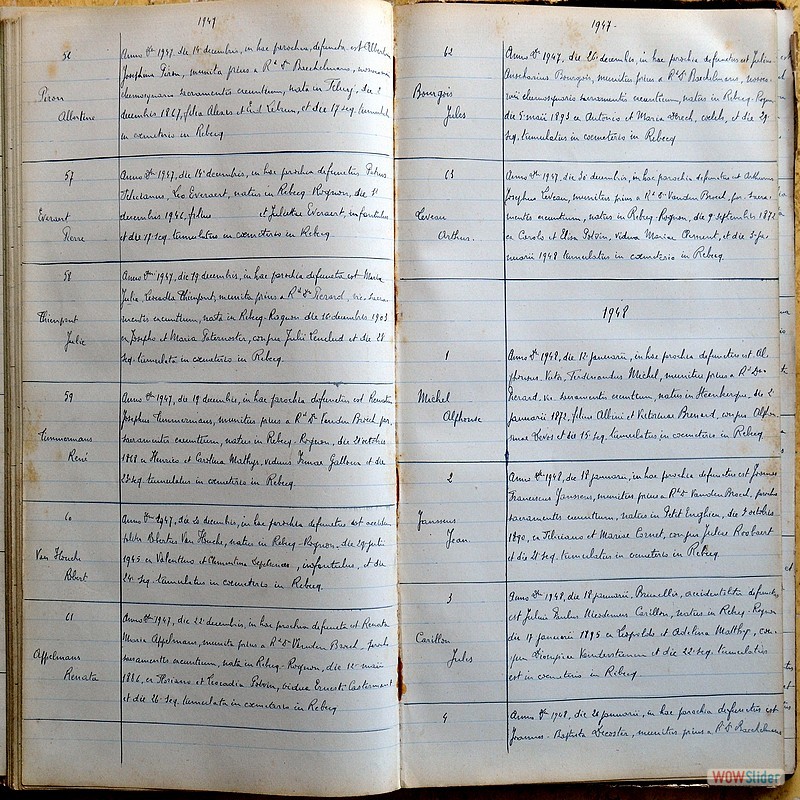 1947
56
Piron
Albertine
Anno Dni 1947, die 14 decembris, in hac parochia, defuncta est Albertina
Josephina Piron, munita prius a Rdo Do Baeckelmans,
eleemosynario sacramentis exeuntium, nata in Tilly, die 2
decembris 1867, filia Alexis et Lebrun, et die 17 seq. tumulata
in coemeterio in Rebecq
57
Everaert
Pierre
Anno Dni 1947, die 15 decembris, in hac parochia defunctus Petrus
Felicianus, Leo Everaert, natus in Rebecq Rognon, die 31
decembris 1946, filius et Julietae Everaert, infantulus
et die 17 seq. tumulatus in coemeterio in Rebecq.
58
Thienpont
Julie
Anno Dni 1947, die 19 decembris, in hac parochia defuncta est Maria
Julia, Leocadia Thienpont, munita prius a Rdo Do Pierard, vic. sacra-
mentis exeuntium, nata in Rebecq-Rognon die 16 decembris 1903
ex Josepho et Maria Paternoster, conjux Julii et die 22
seq. tumulata in coemeterio in Rebecq.
59
Timmermans
René
Anno Dni 1947, die 19 decembris, in hac parochia defunctus est Renatus
Josephus Timmermans, munitus prius a Rdo Do Vanden Broeck, par.
sacramentis exeuntium, natus in Rebecq-Rognon, die 21 octobris
1868 ex Henrico et Carolina Mathys, viduus Irmae Galloux et die
22 seq. tumulatus in coemeterio in Rebecq.
60
Van Houche
Robert
Anno Dni 1947, die 20 decembris, in hac parochia defunctus est acciden-
taliter Robertus Van Houche, natus in Rebecq-Rognon, die 29 julii
1945 ex Valentino et Clementina infantulus, et die
24 seq. tumulatus in coemeterio in Rebecq.
61
Appelmans
Renata
Anno Dni 1947, die 22 decembris, in hac parochia defuncta est Renata
Maria Appelmans, munita prius a Rdo Do Vanden Broeck, parocho
sacramentis exeuntium, nata in Rebecq-Rognon, die 12 maii
1886, ex Floriano et Leocadia Potvin, vidua Ernesti Casterman
et die 26 seq. tumulata in coemeterio in Rebecq
1947.
62
Bourgois
Jules
Anno Dni 1947, die 26 decembris, in hac parochia defunctus est Julius
Anscharius Bourgois, munitus prius a Rdo Do Baeckelmans,
eleemosynario sacramentis exeuntium, natus in Rebecq-Rognon
die 5 maii 1893 ex Antonio et Maria coelebs, et die 29
seq. tumulatus in coemeterio in Rebecq
63
Leveau
Arthur.
Anno Dni 1947, die 30 decembris, in hac parochia defunctus est Arthurus
Josephus Leveau, munitus prius a Rdo Do Vanden Broeck, par. sacra-
mentis exeuntium, natus in Rebecq-Rognon, die 9 septembris 1872
ex Carolo et Elisa Potvin, viduus Mariae Clement, et die 3 ja-
nuarii 1948 tumulatus in coemeterio in Rebecq
1948
1
Michel
Alphonse
Anno Dni 1948, die 12 januarii, in hac parochia defunctus est Al-
phonsus, Victor, Ferdinandus Michel, munitus prius a Rdo Do
Pierard, vic. sacramentis exeuntium, natus in Steenkerque, die 2
januarii 1872, filius Albini et Victorinae Brenard, conjux Alphon-
sinae Devos et die 15 seq. tumulatus in coemeterio in Rebecq
2
Janssens
Jean.
Anno Dni 1948, die 18 januarii, in hac parochia defunctus est Joannes
Franciscus Janssens, munitus prius a Rdo Do Vanden Broeck, parocho
sacramentis exeuntium, natus in Petit Enghien, die 9 octobris
1890, ex Feliciano et Maria Cornet, conjux Juliae Roobaert
et die 21 seq. tumulatus in coemeterio in Rebecq.
3
Carillon
Jules
Anno Dni 1948, die 18 januarii, Bruxellis, accidentaliter defunctus
est Julius Paulus Nicodemus Carillon, natus in Rebecq-Rognon
die 17 januarii 1895 ex Leopoldo et Adelina Matthys, con-
jux Dionysiae Vanderstraeten et die 22 seq. tumulatus
est in coemeterio in Rebecq
4
Anno Dni 1948, die 21 januarii, in hac parochia defunctus est
Joannes-Baptista Decoster, munitus prius a Rdo Do Baeckelmans
WOWSlider